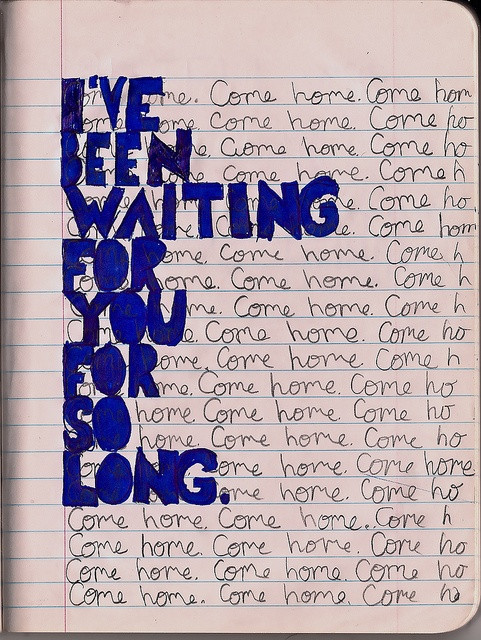 I'VE
BEEN
WAITING
FOR
YOU
FOR
SO
LONG.
Come home. Come hom
Come home. Come ho
Come home. Come ho
Come home. Come h
Come ho
Come hom
Come home. Come h
home. Come home. Come h
Come home. Come h
Come home. Come ho
home. Come home. Come h
Come home. Come ho
home. Come home. Come ho
home. Come home. Come ho
home. Come home
home. Come ho
Come home. Come home. Come h
Come home. Come home. Come ho
Come home. Come home. Come ho
Come home. Come home. Come ho